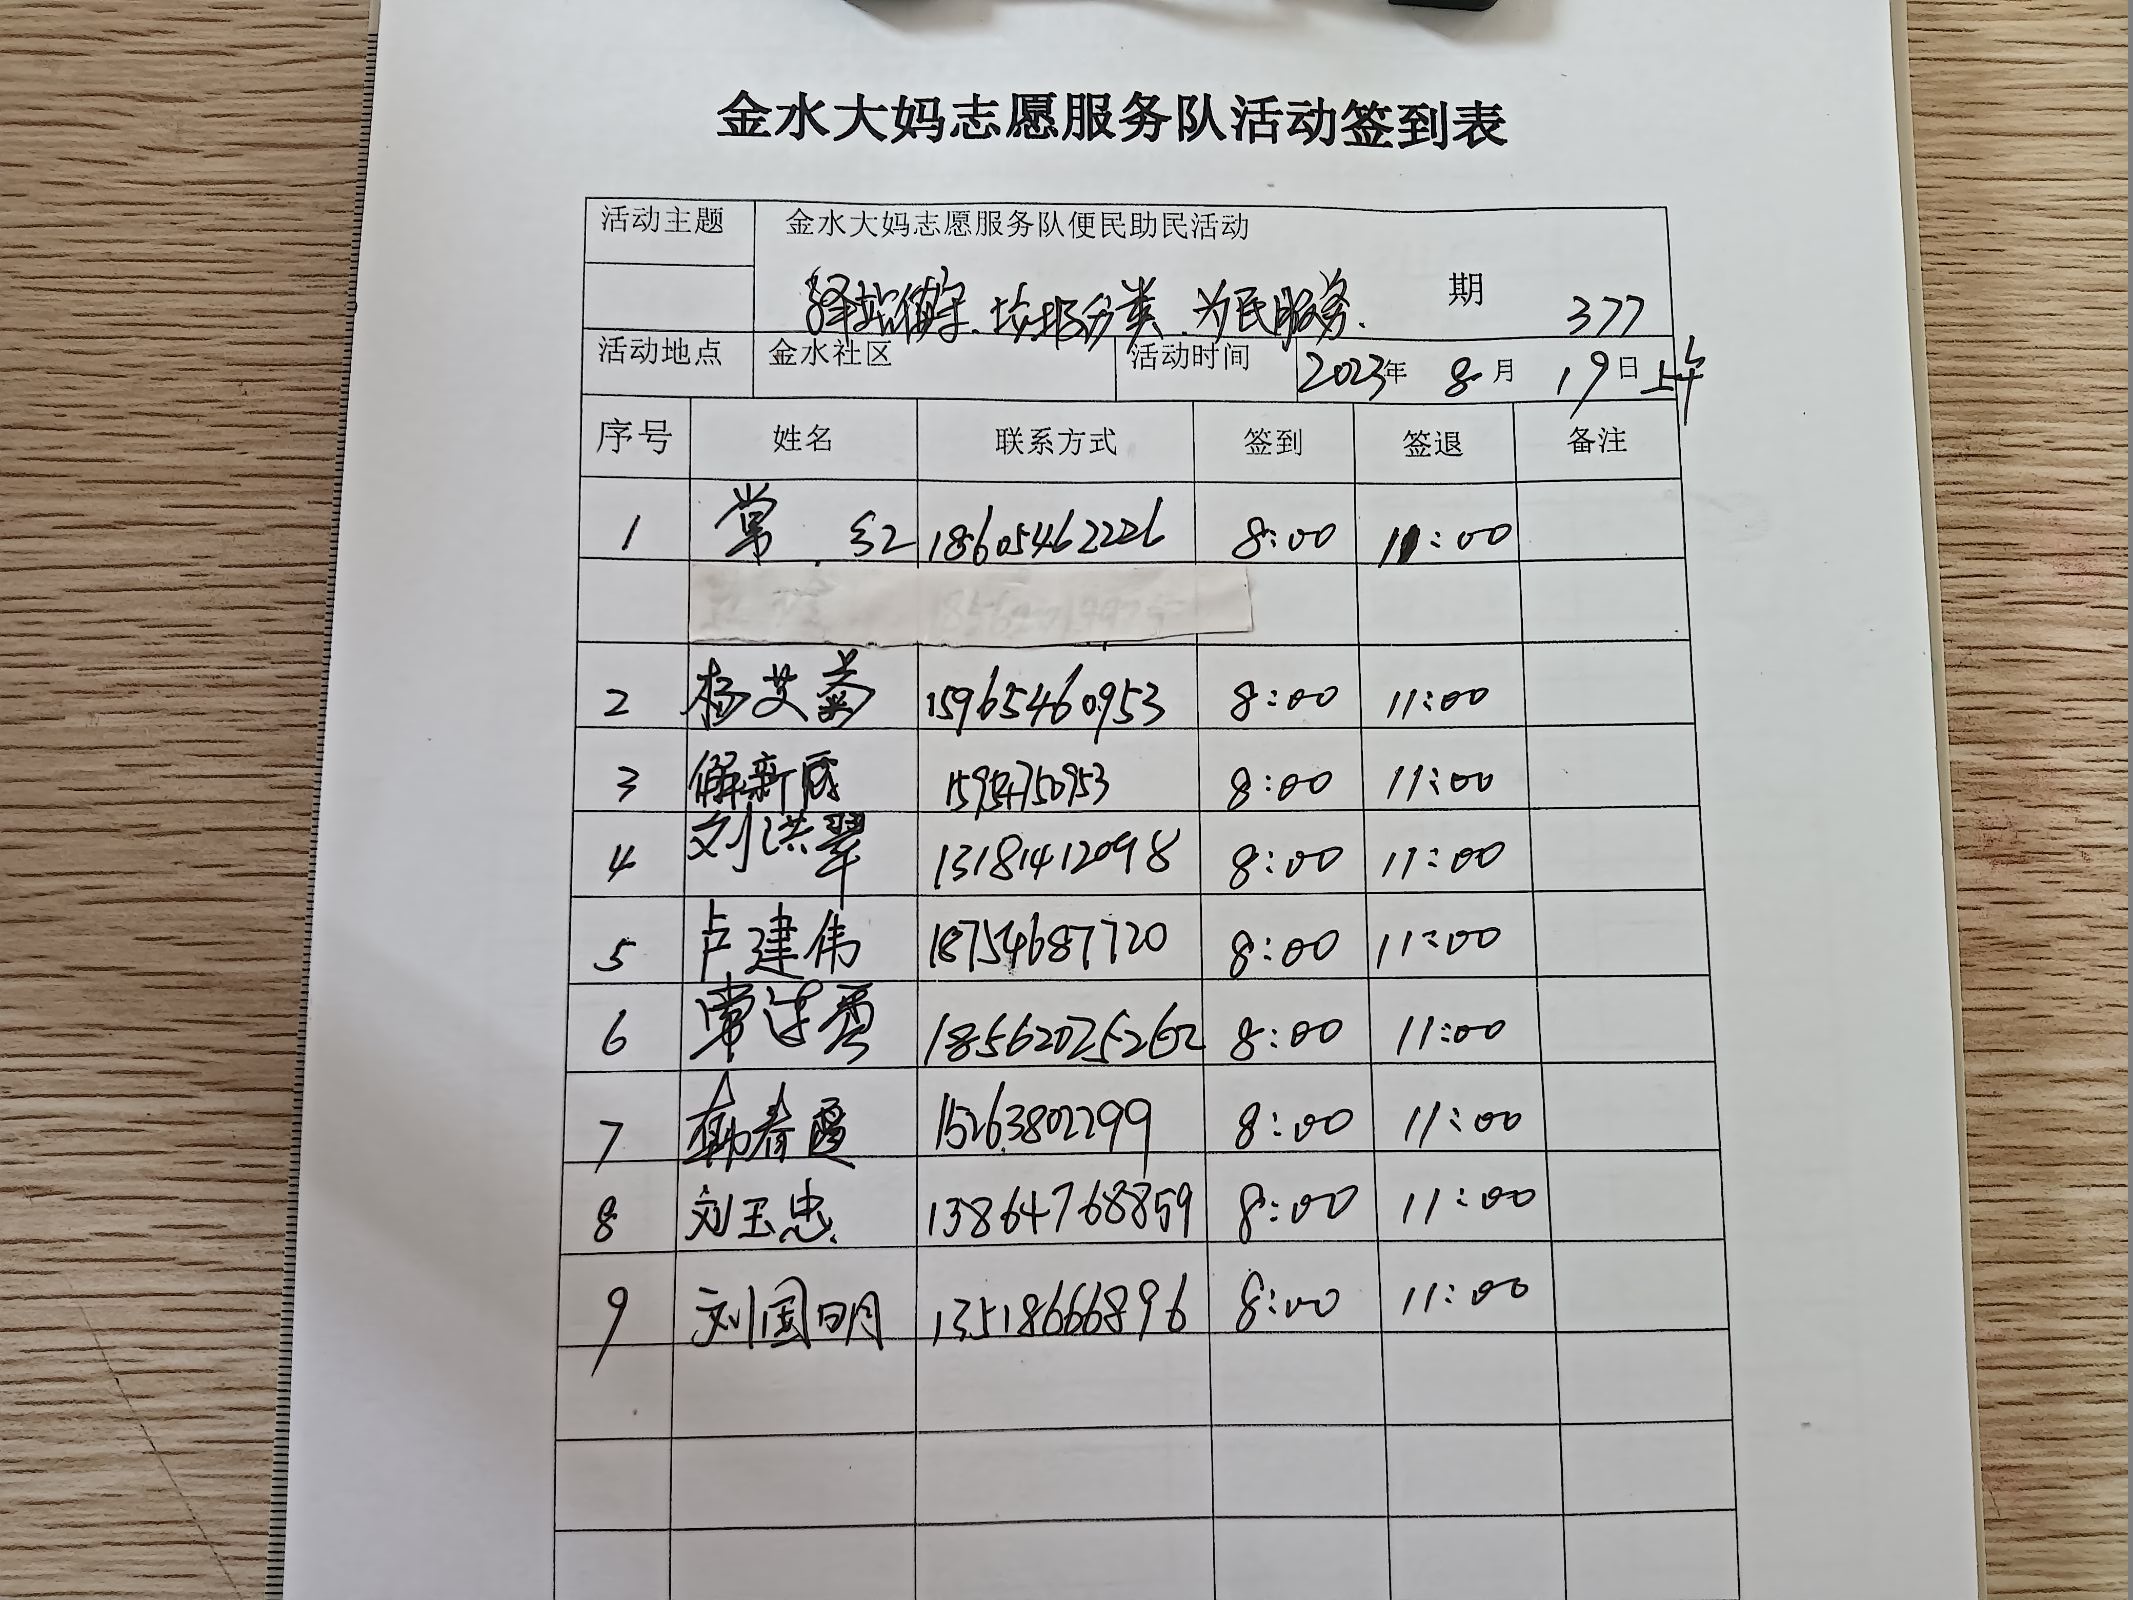 金水大妈志愿服务队活动签到表
活动主题 金水大妈志愿服务队便民助民活动
驿站值守、垃圾分类、为民服务. 期 377
活动地点 金水社区 活动时间 2023年 8月 19日 上午
序号 姓名 联系方式 签到 签退 备注
1 常 红 18605462226 8:00 11:00
2 杨艾菊 15965460953 8:00 11:00
3 解新成 15954750953 8:00 11:00
4 刘洪翠 13181412098 8:00 11:00
5 卢建伟 18754687720 8:00 11:00
6 常连秀 18562025262 8:00 11:00
7 春霞 15263802299 8:00 11:00
8 刘玉忠 13864768859 8:00 11:00
9 刘国明 13518666896 8:00 11:00